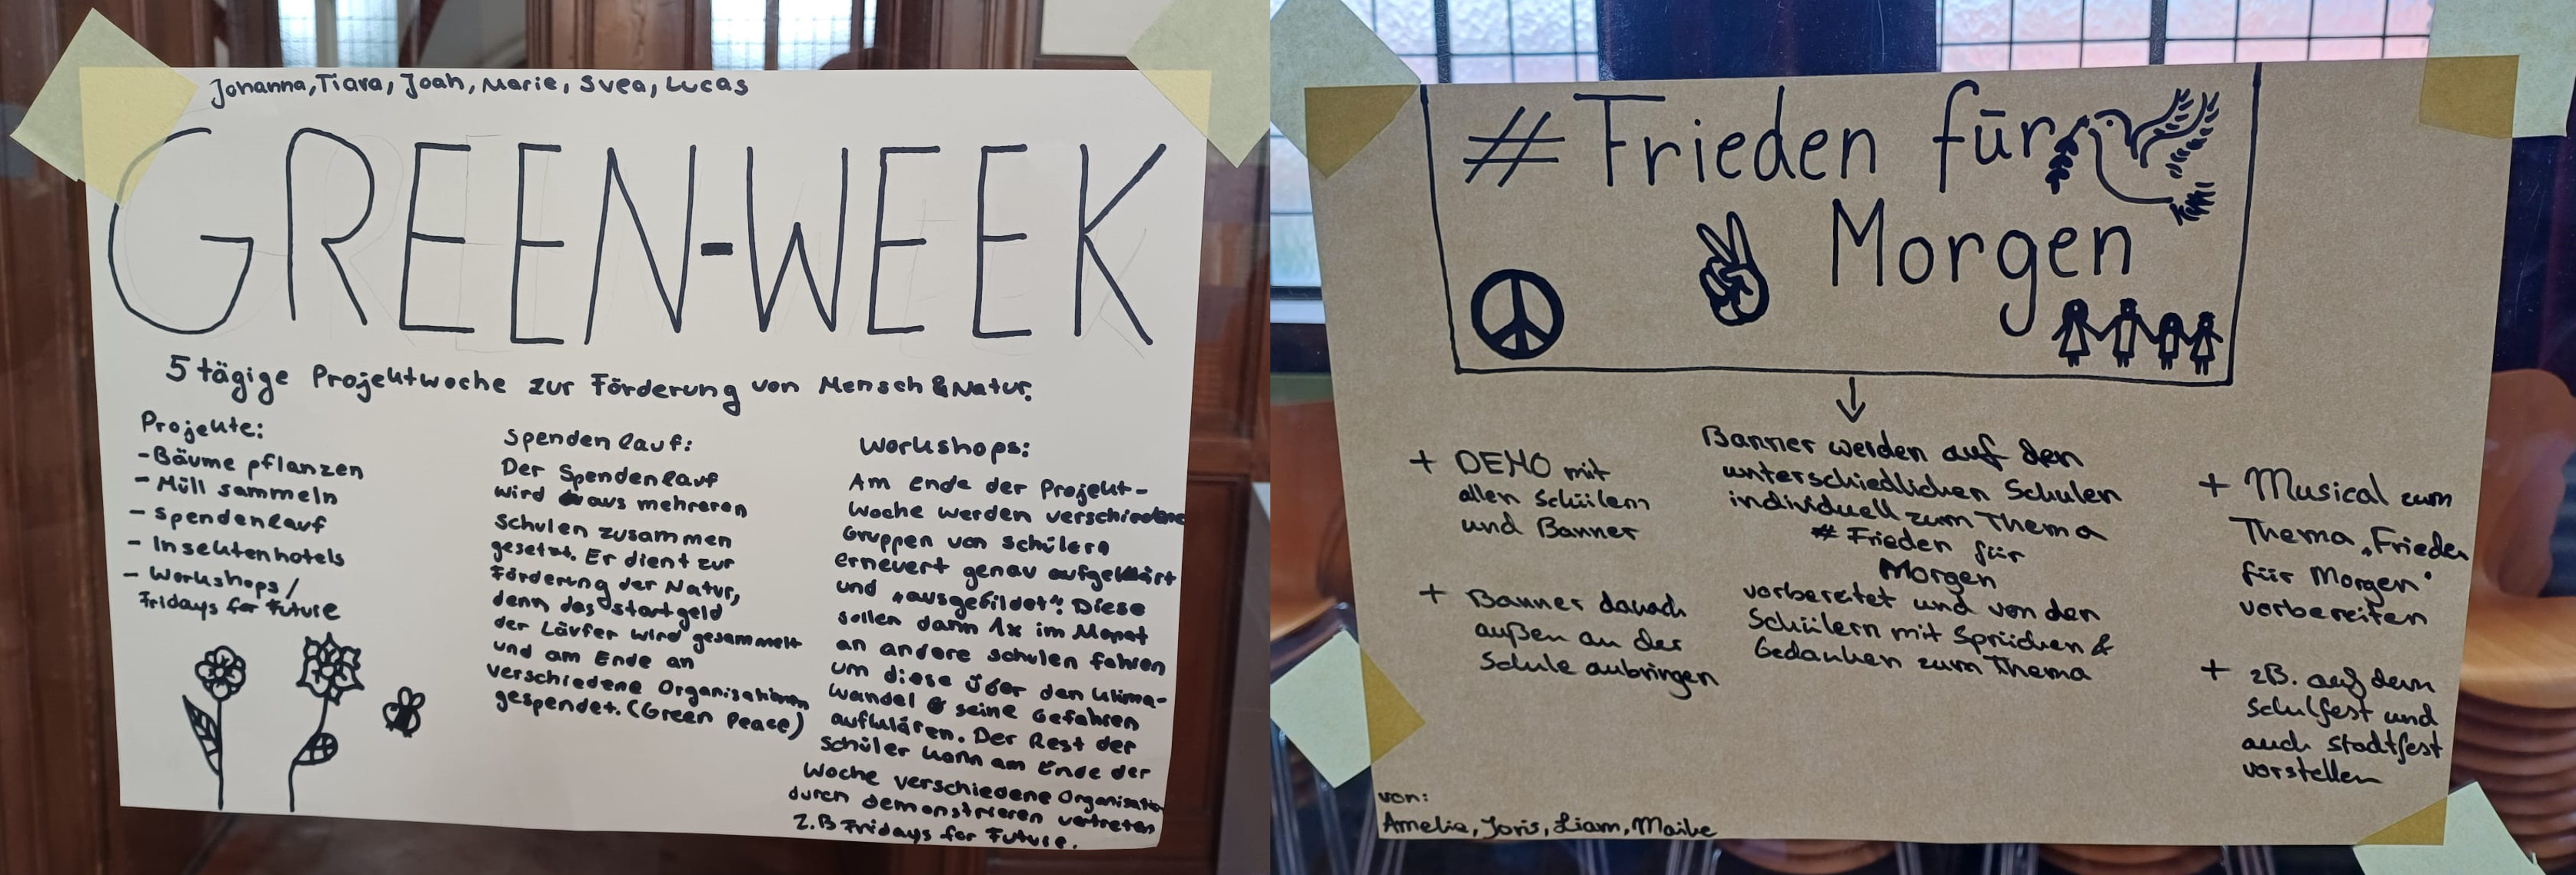 Johanna, Tiara, Joah, Marie, Svea, Lucas
GREEN-WEEK
5 tägige Projektwoche zur Förderung von Mensch & Natur.
Projekte:
- Bäume pflanzen
- Müll sammeln
- Spendenlauf
- Insektenhotels
- Workshops /
Fridays for Future
Spendenlauf:
Der Spendenlauf
wird aus mehreren
Schulen zusammen
gesetzt. Er dient zur
Förderung der Natur,
denn das Startgeld
der Läufer wird gesammelt
und am Ende an
verschiedene Organisationen
gespendet. (Green Peace)
Workshops:
Am Ende der Projekt-
woche werden verschiedene
Gruppen von Schülern
erneuert genau aufgeklärt
und „ausgebildet“. Diese
sollen dann 1x im Monat
an andere Schulen fahren
um diese über den Klima-
wandel & seine Gefahren
aufklären. Der Rest der
Schüler kann am Ende der
Woche verschiedene Organisation
durch demonstrieren vertreten
z.B Fridays for Future.
# Frieden für
Morgen
+ DEMO mit
allen Schülern
und Banner
+ Banner danach
außen an der
Schule anbringen
Banner werden auf den
unterschiedlichen Schulen
individuell zum Thema
# Frieden für
Morgen
vorbereitet und von den
Schülern mit Sprüchen &
Gedanken zum Thema
+ Musical zum
Thema „Frieden
für Morgen“
vorbereiten
+ zB. auf dem
Schulfest und
auch Stadtfest
vorstellen
von:
Amelie, Joris, Liam, Maike